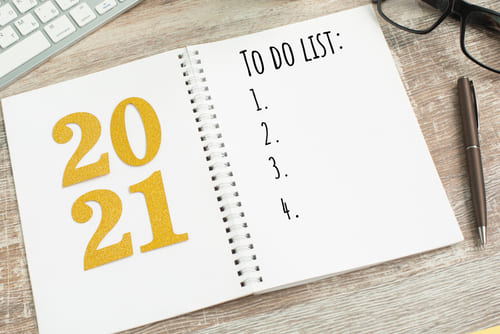 20
21
TO DO LIST:
1.
2.
3.
4.